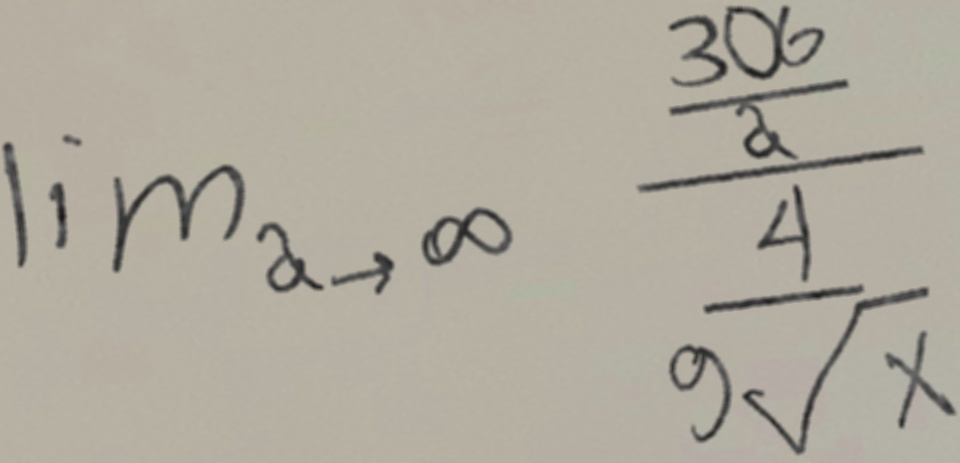 \lim_{a \to \infty} \frac{\frac{306}{a}}{\frac{4}{9\sqrt{x}}}